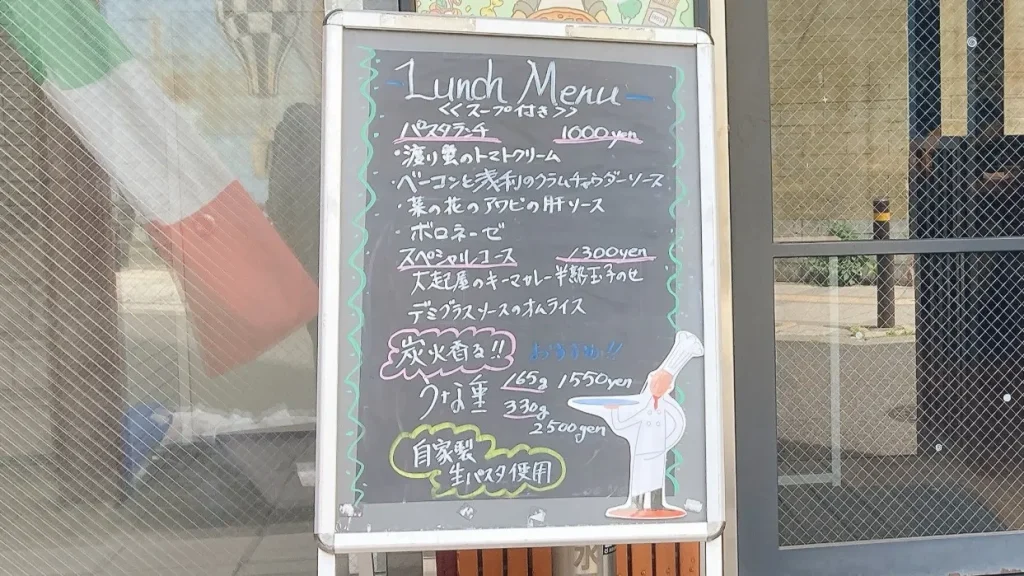 Lunch Menu
<<スープ付き>>
パスタランチ 1000yen
・渡り蟹のトマトクリーム
・ベーコンと浅利のクラムチャウダーソース
・菜の花のアワビの肝ソース
・ボロネーゼ
スペシャルコース 1300yen
大起屋のキーマカレー半熟玉子のせ
デミグラスソースのオムライス
炭火香る!! おすすめ!!
うな重 165g 1550yen
330g
2500yen
自家製
生パスタ使用
水